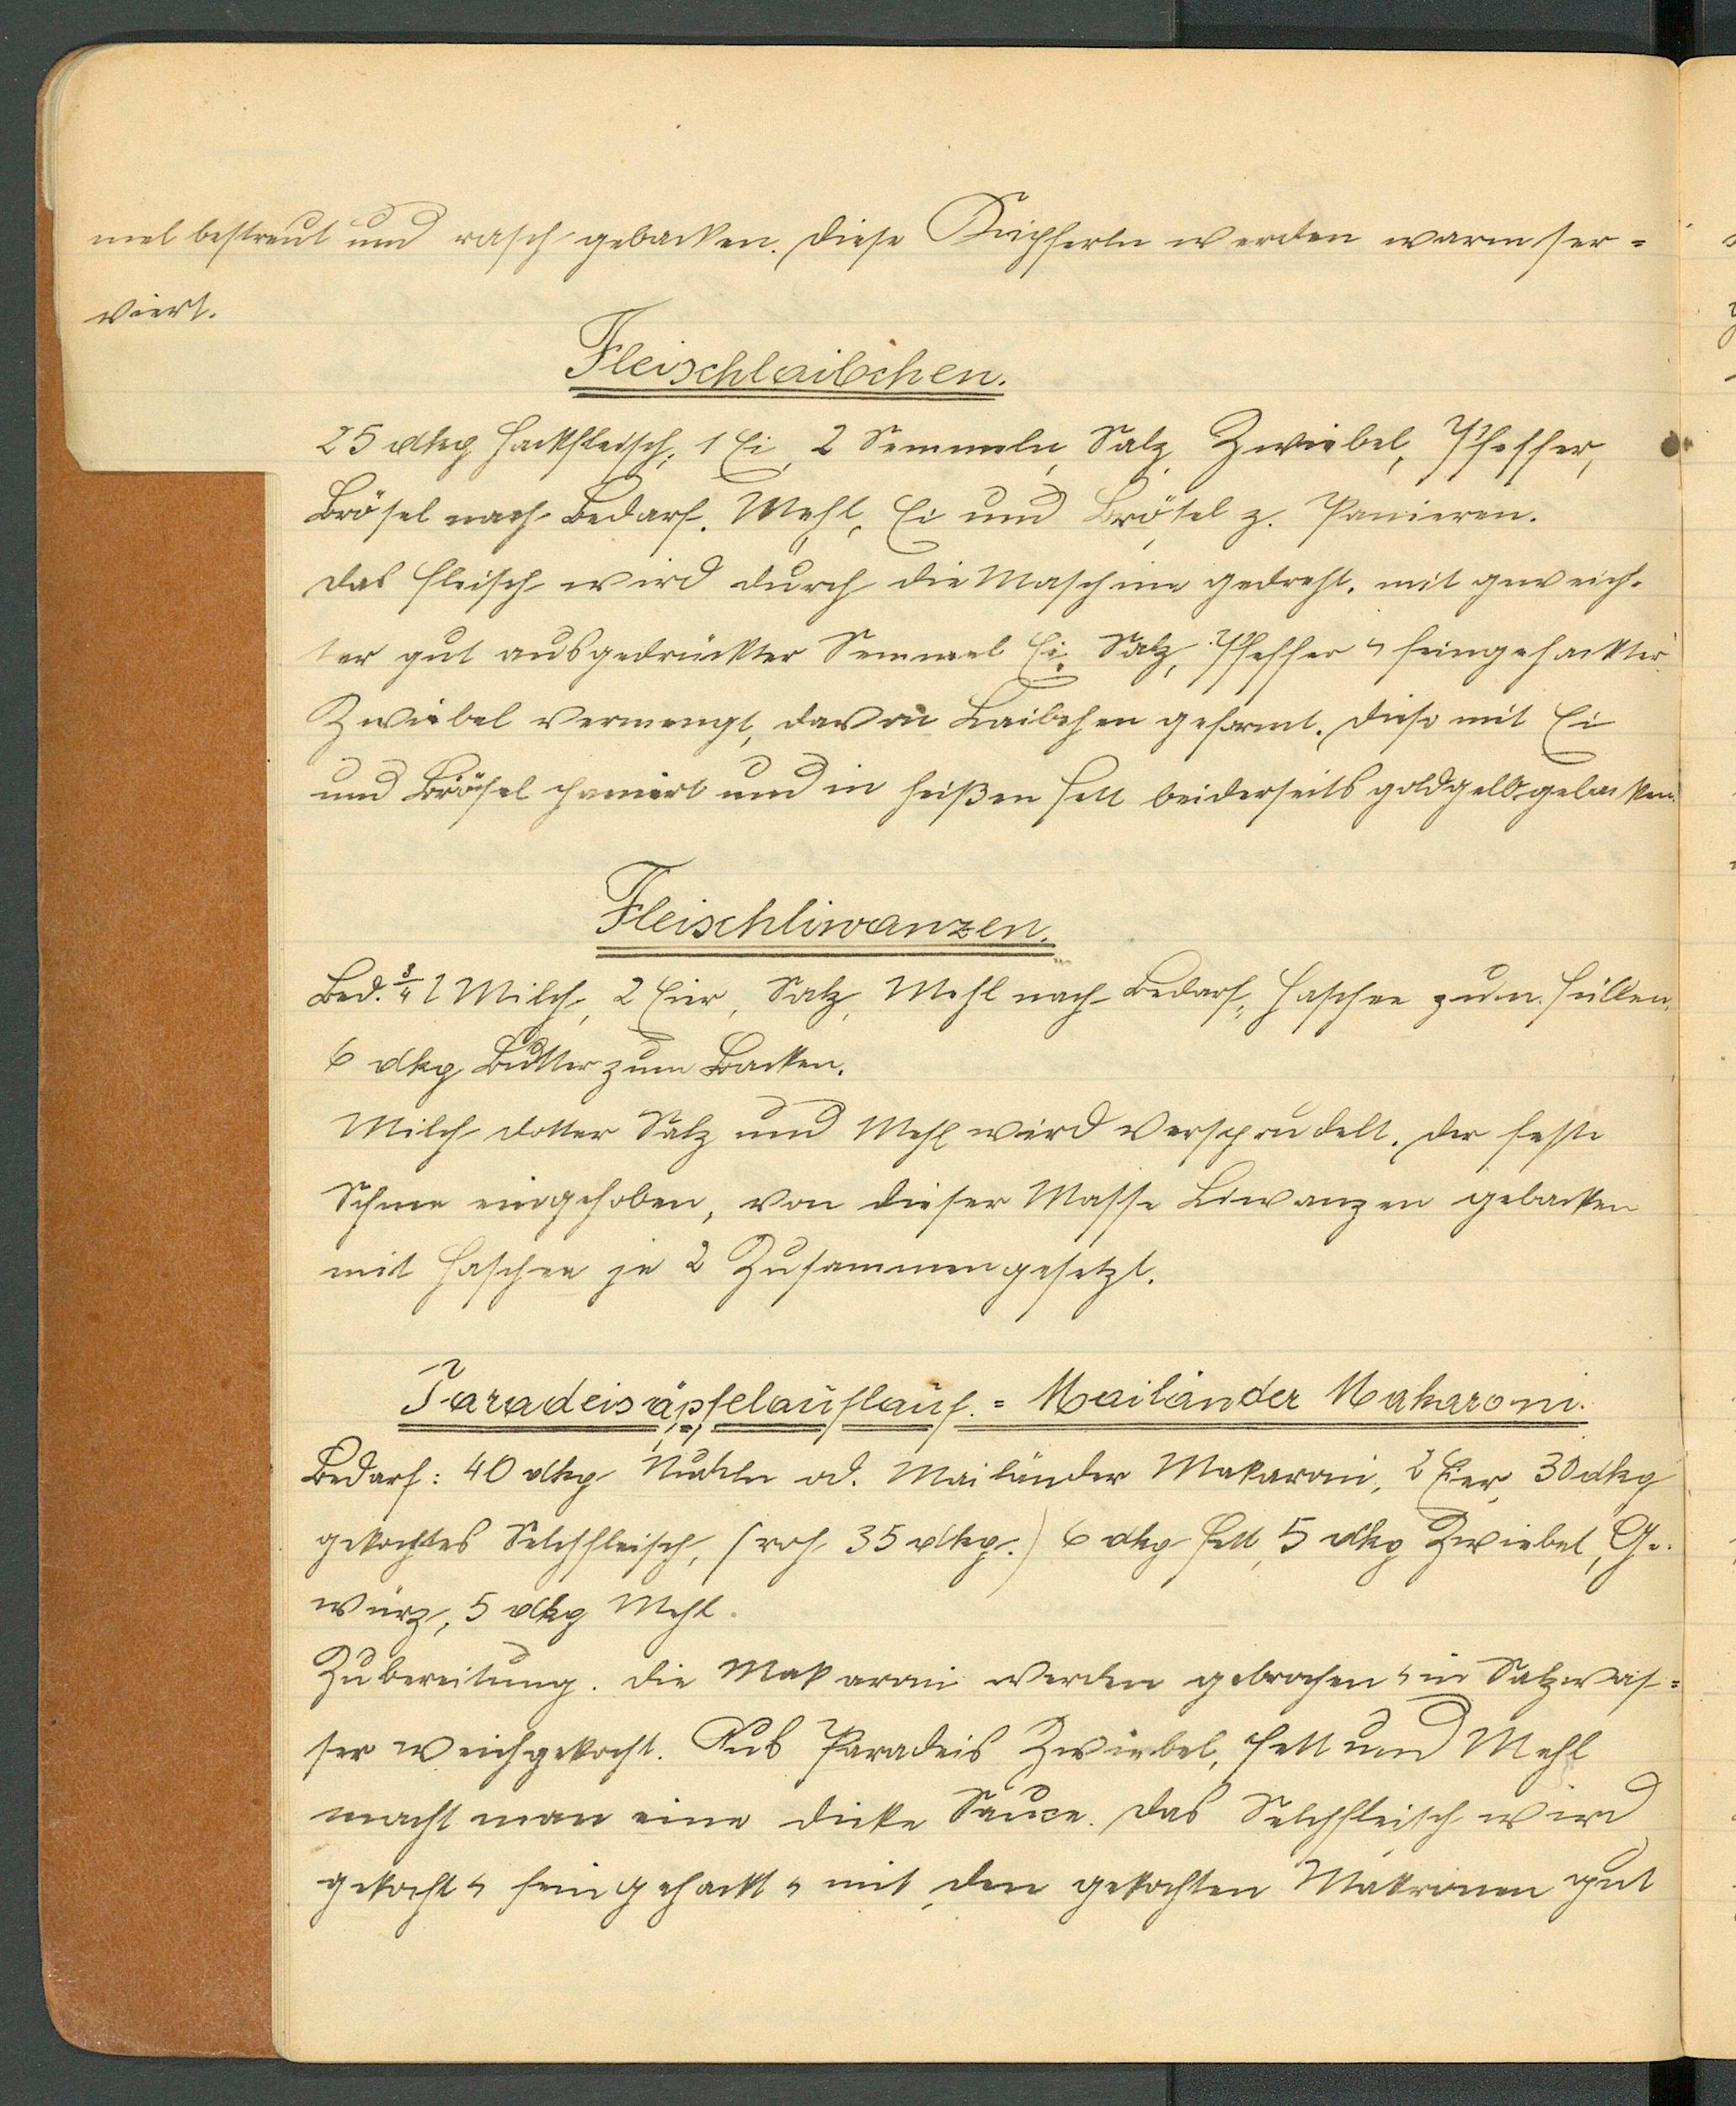 mel bestreut und rasch gebacken. Diese Kipferln werden warm ser=
viert.
Fleischlaibchen.
25 dkg Hackfleisch, 1 Ei, 2 Semmeln, Salz, Zwiebel, Pfeffer,
Brösel nach Bedarf. Mehl, Ei und Brösel z. Panieren.
Das Fleisch wird durch die Maschine gedreht, mit geweich-
ter gut ausgedrückter Semmel Ei, Salz, Pfeffer u feingehackter
Zwiebel vermengt, davon Laibchen geformt. Diese mit Ei
und Brösel paniert und in heißen Fett beiderseits goldgelb gebacken.
Fleischliwanzen.
Bed. 3/4 l Milch, 2 Eier, Salz, Mehl nach Bedarf, Haschee zum Füllen,
6 dkg Butter zum Backen.
Milch Dotter Salz und Mehl wird versprudelt. Der feste
Schnee eingehoben, von dieser Masse Liwanzen gebacken
mit Haschee je 2 Zusammengesetzt.
Paradeisäpfelauflauf. = Mailänder Makaroni.
Bedarf: 40 dkg Nudeln od. Mailänder Makaroni, 2 Eier, 30 dkg
gekochtes Selchfleisch, (roh 35 dkg.) 6 dkg Fett, 5 dkg Zwiebel, Ge-
würz, 5 dkg Mehl.
Zubereitung. Die Makaroni werden gebrochen u in Salzwas=
ser weichgekocht. Aus Paradeis Zwiebel, Fett und Mehl
macht man eine dicke Sauce. Das Selchfleisch wird
gekocht u fein gehackt u mit den gekochten Makronen gut